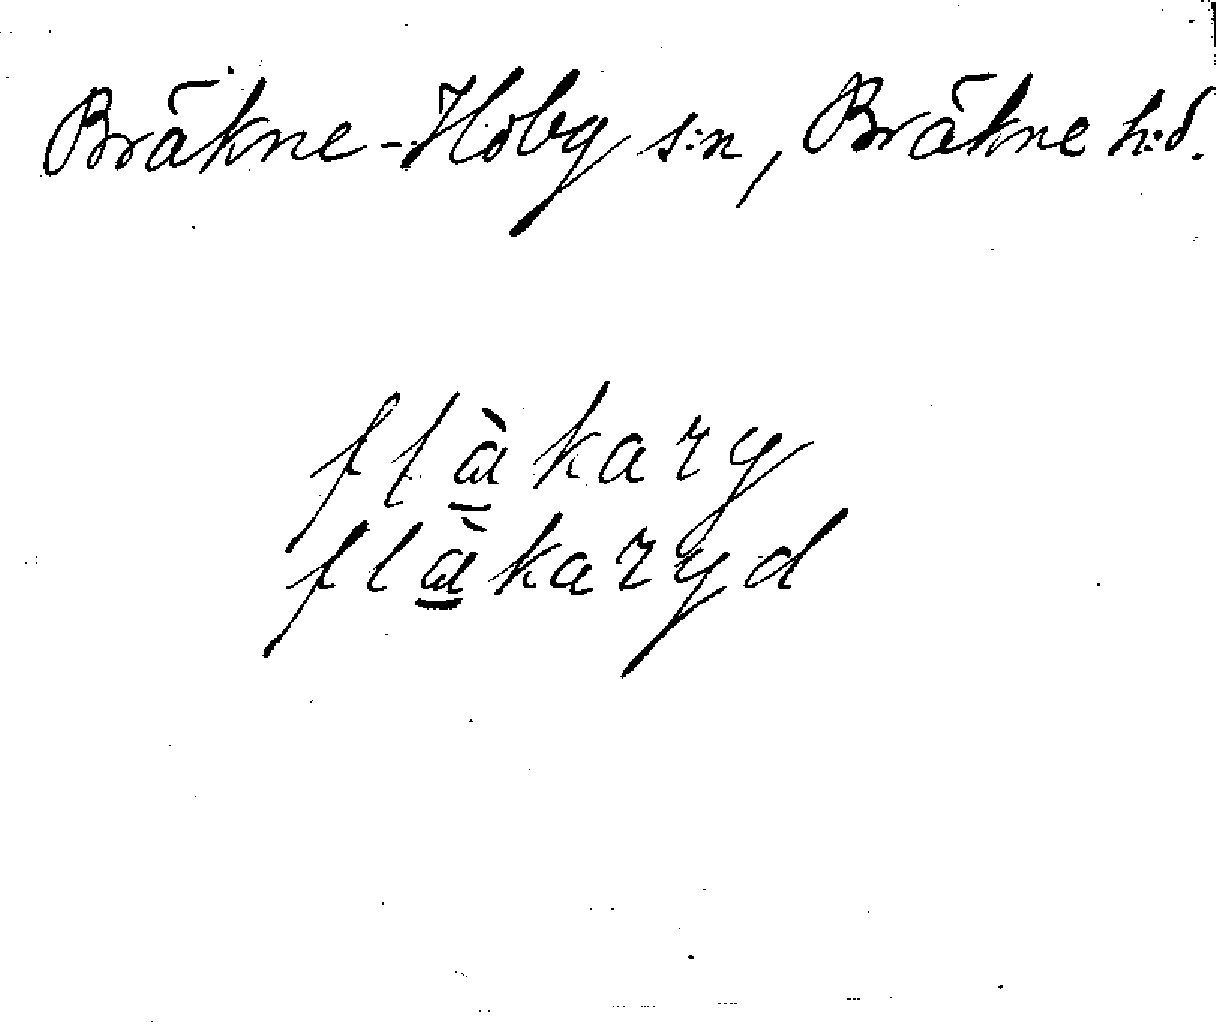 Bräkne-Hoby s:n, Bräkne h:d.
flàkary
flàkaryd